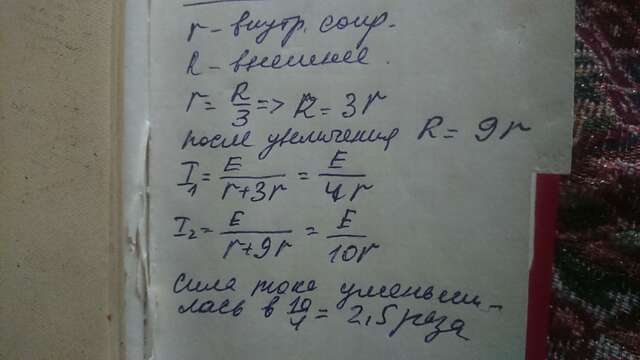 r - внутр. сопр.
R - внешнее.
r = R/3 => R = 3r
после увеличения R = 9r
I₁ = E/(r+3r) = E/4r
I₂ = E/(r+9r) = E/10r
сила тока уменьши-
лась в 10/4 = 2,5 раза